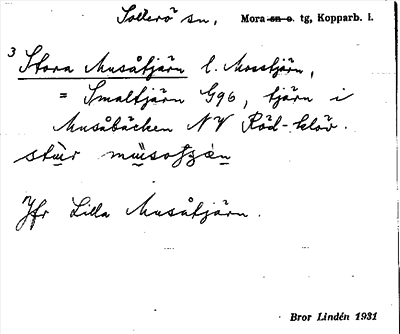 Sollerö sn, Mora sn o. tg, Kopparb. l.
3 Stora Musåtjärn l. Mosstjärn,
= Smaltjärn G96, tjärn i
Musåbäcken NV Röd-klöv.
Jfr Lilla Musåtjärn.
Bror Lindén 1931